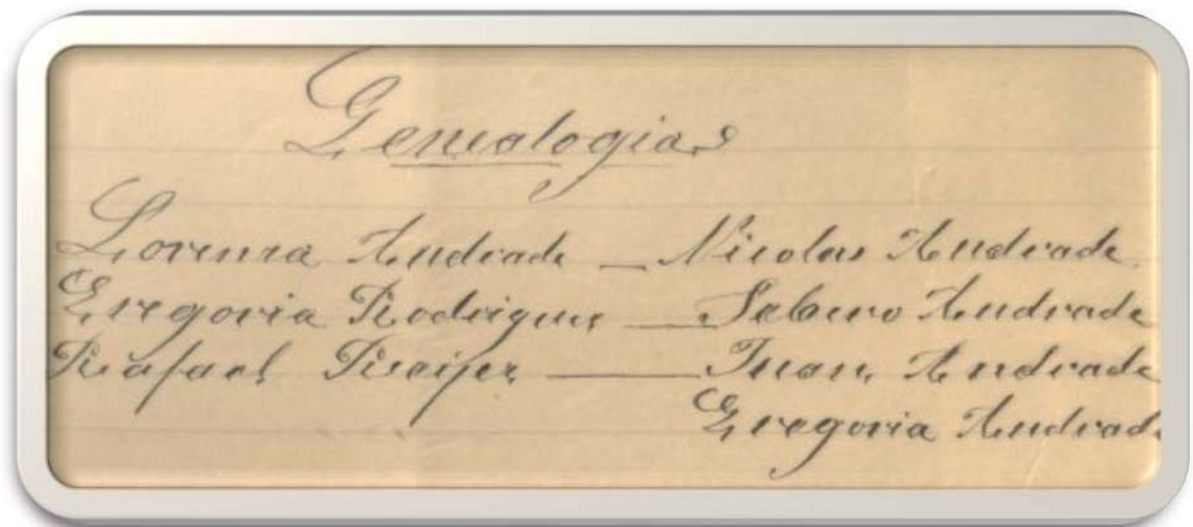 Genealogias
Lorenza Andrade — Nicolas Andrade
Gregoria Rodrigues — Andrade
Rafael — Juan Andrade
Gregoria Andrade